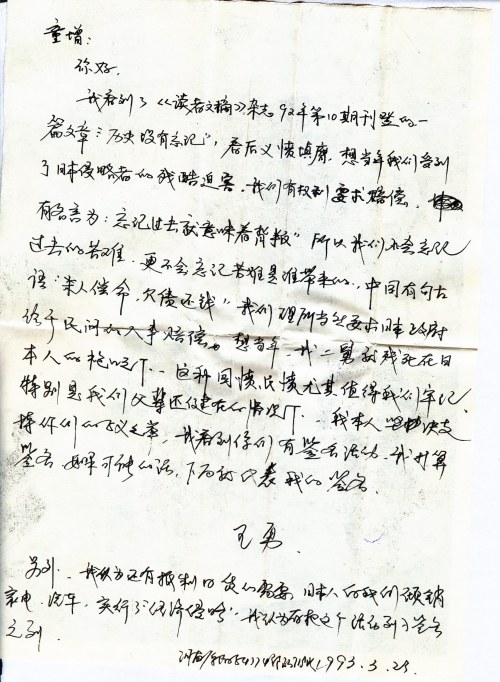 童增:
你好,
我看到了《读者文摘》杂志92年第10期刊登的一
篇文章:"历史没有忘记",看后义愤填膺.想当年我们受到
了日本侵略者的残酷迫害.我们有权利要求赔偿.
有名言为:"忘记过去就意味着背叛"所以我们不会忘记
过去的苦难.更不会忘记苦难是谁带来的.中国有句古
语"杀人偿命,欠债还钱"我们理所当然要求日本政府
给予民间的人事赔偿.想当年.我二舅就残死在日
本人的枪口下..这种国愤民愤尤其值得我们牢记.
特别是我们父辈还健在的情况下..我本人坚决支
持你们的正义之举,我看到你们有签名活动.我打算
签名.如果可能的话,下面就代表我的签名.
王勇.
另外.我认为还有抵制日货的需要.日本人向我们倾销
家电.汽车,实行了"经济侵略"我认为应把这个活动列入签名
之列.
1993.3.25.